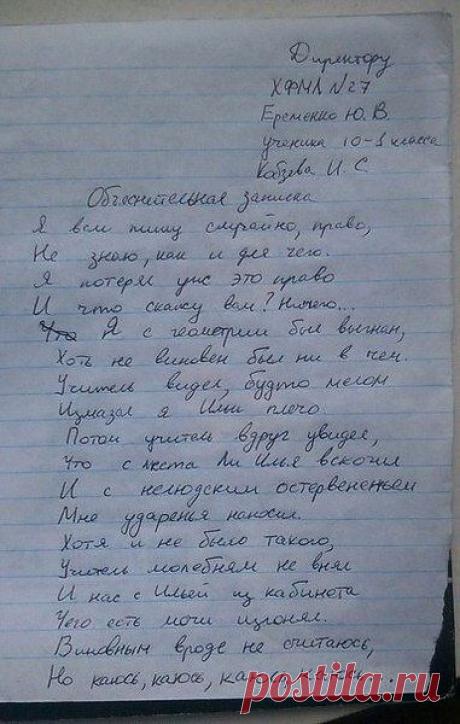 Директору
ХФМЛ №27
Еременко Ю. В.
ученика 10-1 класса
Кобзева И. С.
Объяснительная записка
Я вам пишу случайно, право,
Не знаю, как и для чего.
Я потерял уж это право
И что скажу вам? Ничего...
Что Я с геометрии был выгнан,
Хоть не виновен был ни в чем.
Учитель видел, будто мелом
Измазал я Ильи плечо.
Потом учитель вдруг увидел,
Что с места Ли Илья вскочил
И с нелюдским остервененьем
Мне ударенья наносил.
Хотя и не было такого,
Учитель молебням не внял
И нас с Ильей из кабинета
Чего есть мочи изгонял.
Виновным вроде не считаюсь,
Но каюсь, каюсь, каюсь, каюсь...
postila.ru